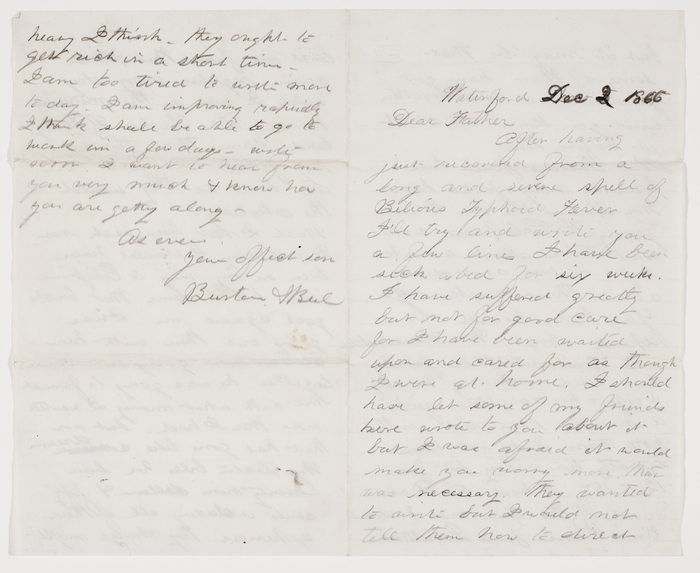 Waterford Dec 2 1866
Dear Father
After having
just recovered from a
long and severe spell of
Bilious Typhoid Fever
I'll try and write you
a few lines I have been
sick abed for six weeks.
I have suffered greatly
but not for good care
for I have been waited
upon and cared for as though
I were at home. I should
have let some of my friends
here wrote to you about it
but I was afraid it would
make you worry more than
was necessary. They wanted
to write but I would not
tell them how to direct
heavy I think - they ought to
get rich in a short time -
I am too tired to write more
to day. I am improving rapidly
I think shall be able to go to
work in a few days - write
soon I want to hear from
you very much & know how
you are getty along -
As ever
your affect son
Burton